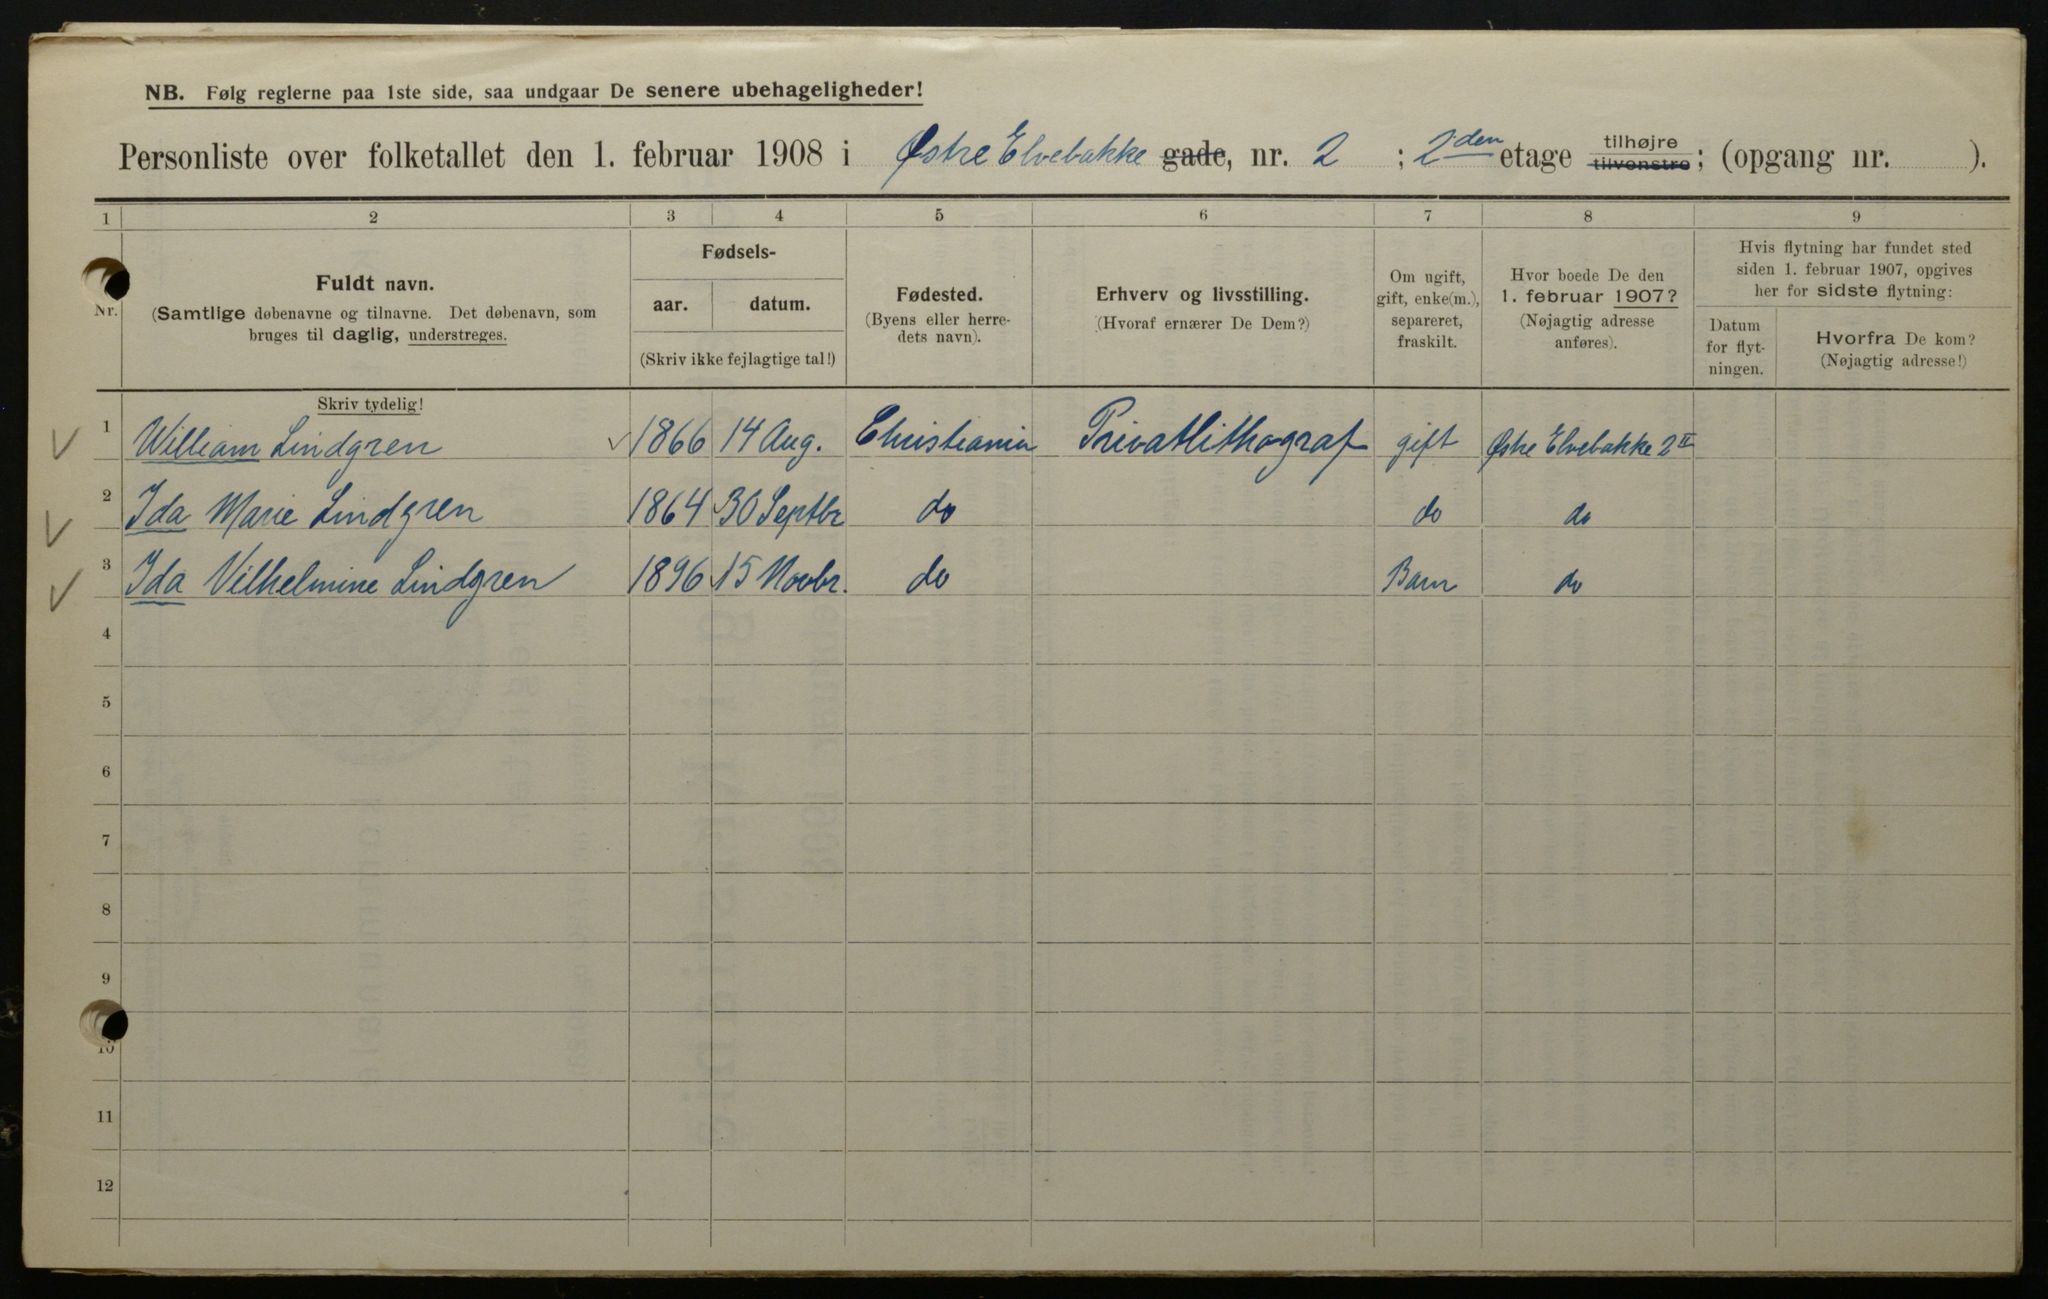 NB. Følg reglerne paa 1ste side, saa undgaar De senere ubehageligheder!
Personliste over folketallet den 1. februar 1908 i Østre Elvebakke gade, nr. 2 ; 2den etage tilhøjre tilvenstre ; (opgang nr. ).
1 2 3 4 5 6 7 8 9
Nr.
Fuldt navn.
(Samtlige døbenavne og tilnavne. Det døbenavn, som
bruges til daglig, understreges.
Skriv tydelig!
Fødsels-
aar. datum.
(Skriv ikke fejlagtige tal!)
Fødested.
(Byens eller herre-
dets navn).
Erhverv og livsstilling.
(Hvoraf ernærer De Dem?)
Om ugift,
gift, enke(m.),
separeret,
fraskilt.
Hvor boede De den
1. februar 1907?
(Nøjagtig adresse
anføres).
Hvis flytning har fundet sted
siden 1. februar 1907, opgives
her for sidste flytning:
Datum
for flyt-
ningen.
Hvorfra De kom?
(Nøjagtig adresse!)
1 William Lindgren 1866 14 Aug. Christiania Privatlithograf gift Østre Elvebakke 2 II
2 Ida Marie Lindgren 1864 30 Septbr do do do
3 Ida Vilhelmine Lindgren 1896 15 Novbr. do Barn do
4
5
6
7
8
9
10
11
12